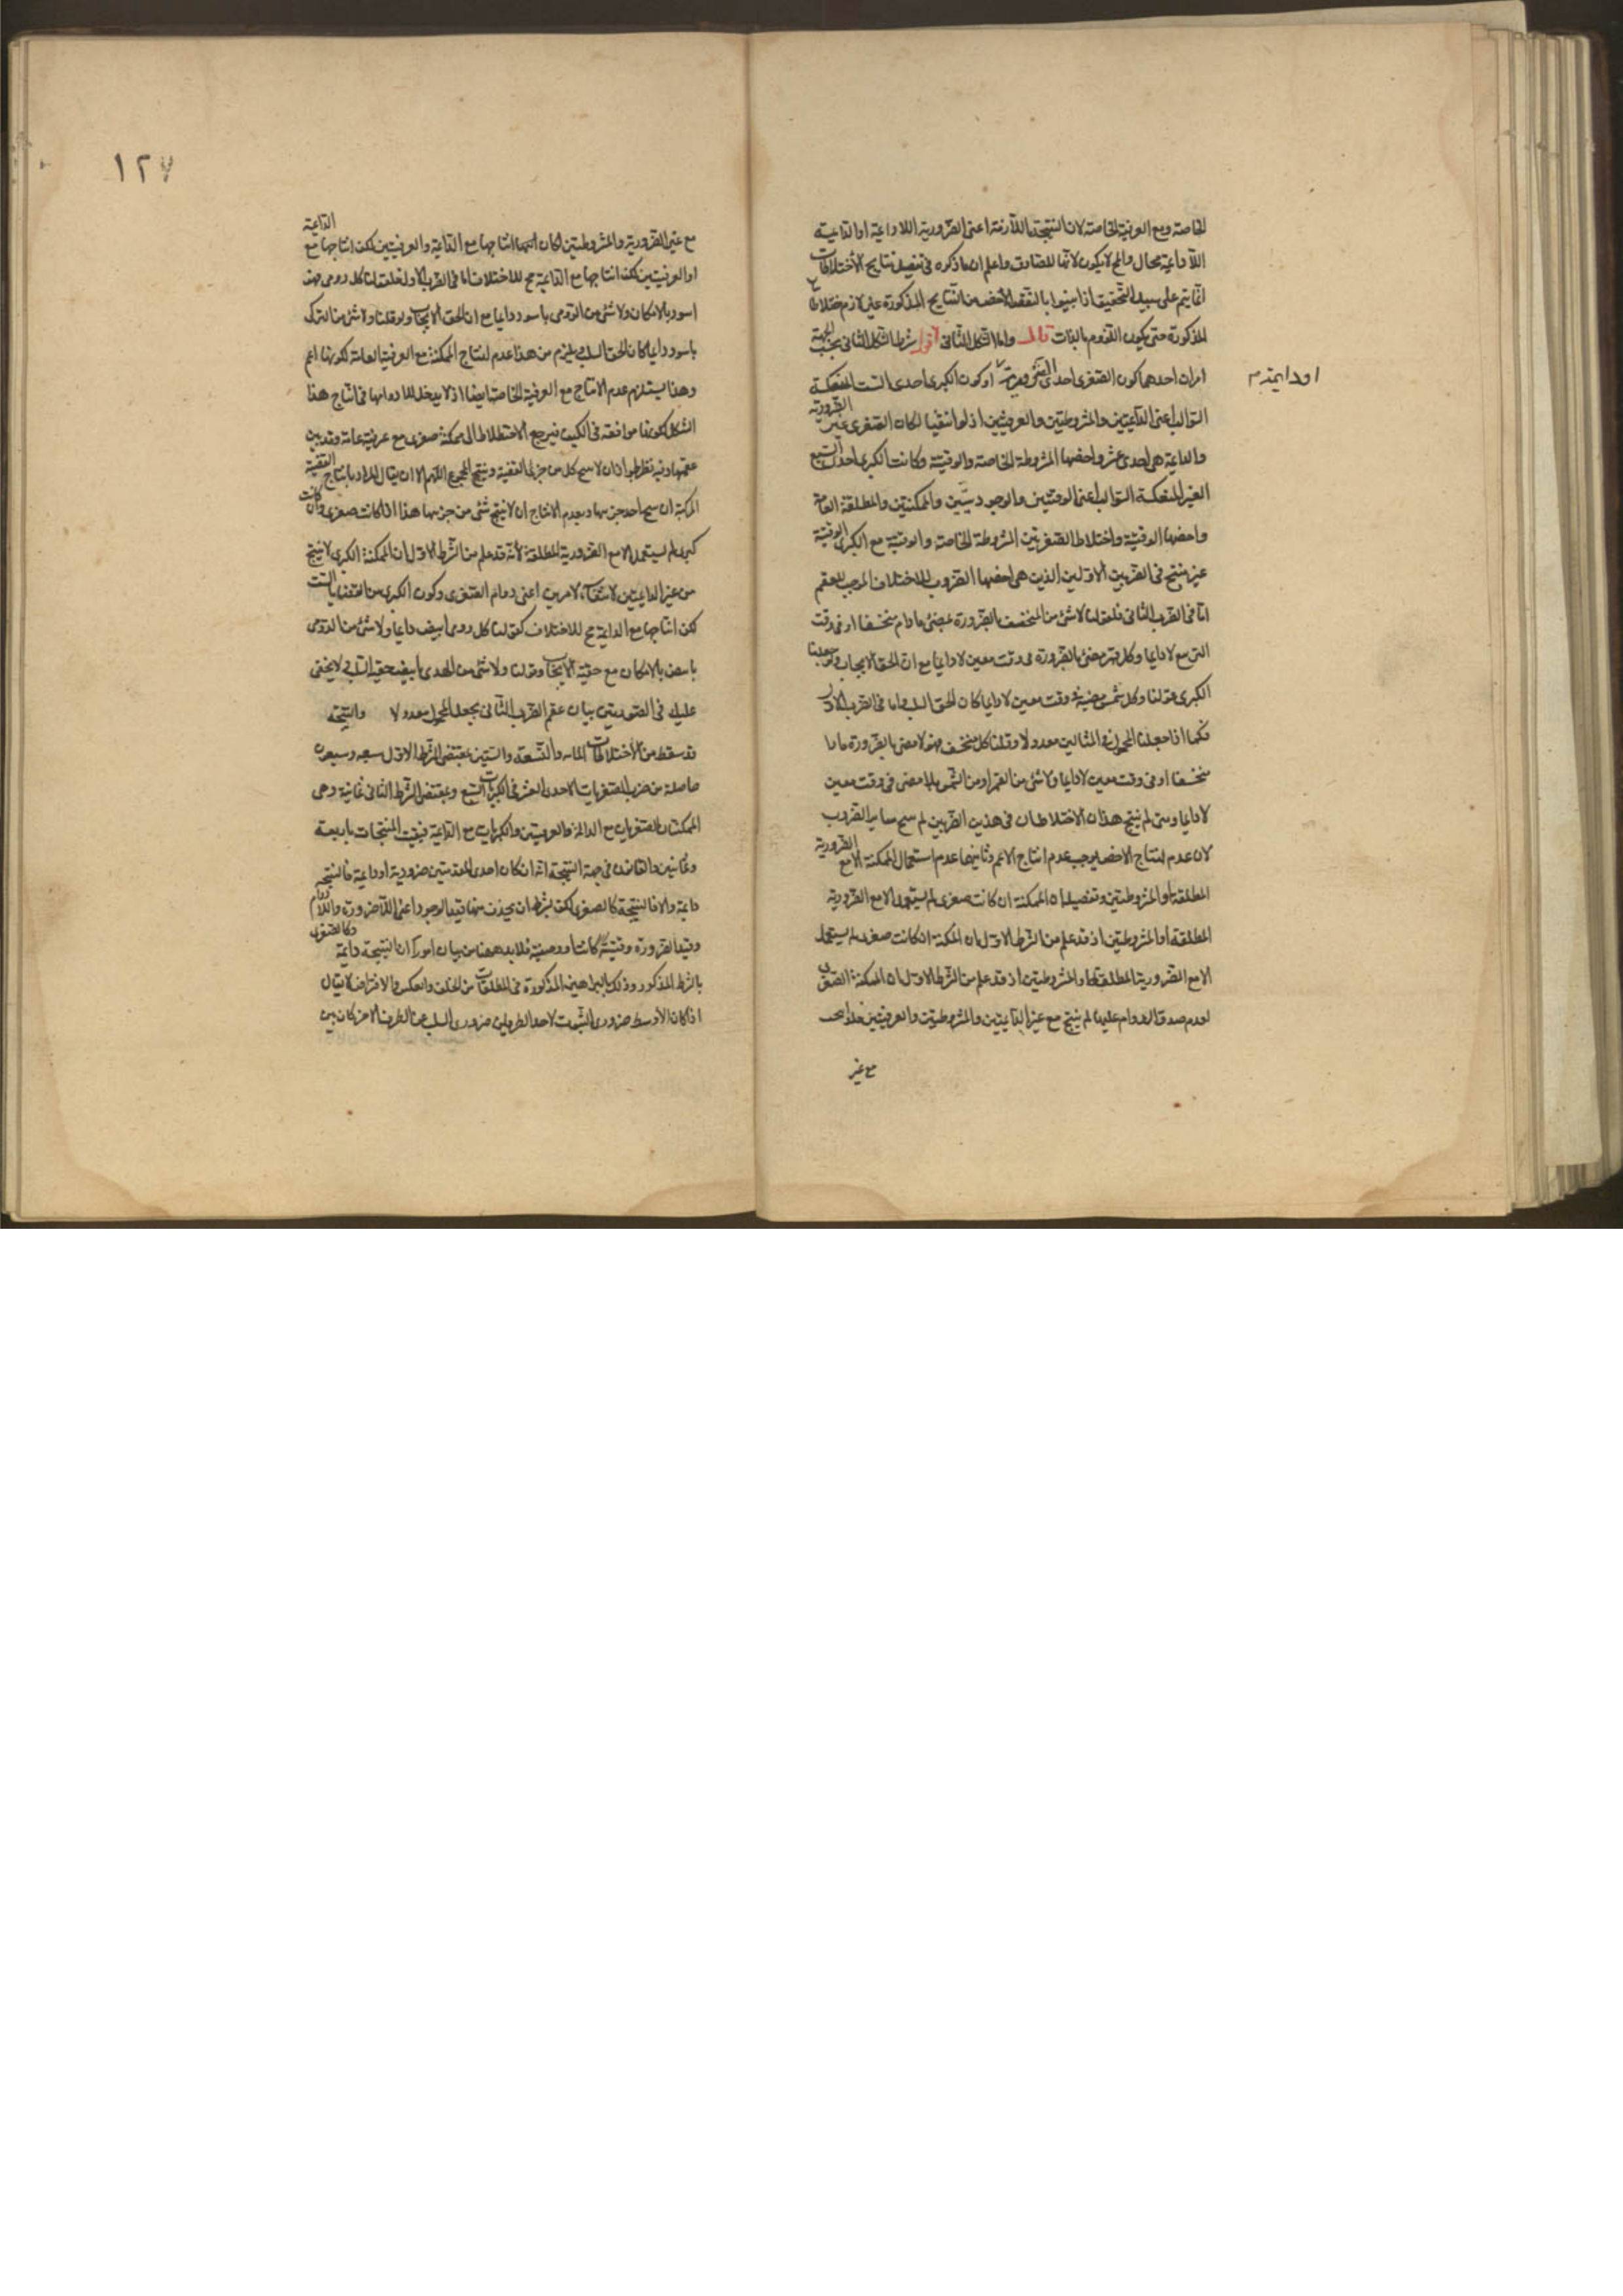 الخاصة ومع العرفية الخاصة لان النتيجة اللازمة اعنى الضرورية اللاداعية او الداعية
اللاداعية محال والمح لا يكون لازما للصادق واعلم ان ما ذكره فى تفصيل نتايج الاختلاطات
انما يتم على سبيل التحقيق اذا بينوا بالنقض الاخص من النتايج المذكورة غير لازم
المذكورة حتى يكون اللزوم بالذات قال واما الشكل الثانى اقول شرط الشكل الثانى بحسب الجهة
امران احدهما كون الصغرى احدى او كون الكبرى احدى الست المنعكسة
او دايمة م
السوالب اعنى الدايمتين والمشروطتين والعرفيتين اذ لو انتفيا لكان الصغرى غير الضرورية
والدايمة هى احدى عشر واخصها المشروطة الخاصة والوقتية وكانت الكبرى احدى السبع
الغير المنعكسة السوالب اعنى الوقتيتين والوجوديتين والممكنتين والمطلقة العامة
واخصها الوقتية واختلاط الصغريتين المشروطة الخاصة والوقتية مع الكبرى الوقتية
غير منتج فى الضربين الاولين الذين هى اخصها الضروب للاختلاف الموجب للعقم
اما فى الضرب الثانى فلقولنا لاشئ من المنخسف بالضرورة بمضئ مادام منخسفا او فى وقت
لا دايما وكل قمر مضئ بالضرورة فى وقت معين لا دايما مع ان الحق الايجاب ولو بدلنا
الكبرى بقولنا وكل شمس مضيئة فى وقت معين لا دايما كان الحق السلب واما فى الضرب الاول
فكما اذا جعلنا المحمول فى المثالين معدولا وقلنا كل منخسف فهو لا مضئ بالضرورة مادام
منخسفا او فى وقت معين لا دايما ولا شئ من القمر او من الشمس بلا مضئ فى وقت معين
لا دايما ومتى لم ينتج هذان الاختلاطان فى هذين الضربين لم ينتج ساير الضروب
لان عدم انتاج الاخص يوجب عدم انتاج الاعم وثانيهما عدم استعمال الممكنة الا مع الضرورية
المطلقة او المشروطتين وتفصيله ان الممكنة ان كانت صغرى لم يستعمل الا مع الضرورية
المطلقة او المشروطتين اذ قد علم من الشرط الاول ان الممكنة ان كانت صغرى لم يستعمل
الا مع الضرورية المطلقة او المشروطتين اذ قد علم من الشرط الاول ان الممكنة الصغرى
لعدم صدق الدوام عليها لم ينتج مع غير الدايمتين والمشروطتين والعرفيتين
مع غير
١٢٧
مع غير الضرورية والمشروطتين لكان انتاجها مع الدايمة والعرفيتين لكن انتاجها مع الدايمة
او العرفيتين لكن انتاجها مع الدايمة مح للاختلاف اما فى الضرب الاول فلقولنا كل رومى فهو
اسود بالامكان ولا شئ من الرومى باسود دايما مع ان الحق الايجاب ولو قلنا ولا شئ من الترك
باسود دايما كان الحق السلب ويلزم من هذا عدم انتاج الممكنة مع العرفية العامة لكونها اعم
وهذا يستلزم عدم الانتاج مع العرفية الخاصة ايضا اذ لا يدخل للادوامها فى انتاج هذا
الشكل لكونها موافقة فى الكيف فيرجع الاختلاط الى ممكنة صغرى مع عرفية عامة وقد بين
عقمها وفيه نظر لجواز ان لا ينتج كل من جزئى القضية وينتج المجموع اللهم الا ان يقال المراد بانتاج القضية
المركبة ان ينتج احد جزئيها وبعدم الانتاج ان لا ينتج شئ من جزئيها هذا اذا كانت صغرى وان كانت
كبرى لم يستعمل الا مع الضرورية المطلقة لانه قد علم من الشرط الاول ان الممكنة الكبرى لا ينتج
من غير الدايمتين لانتفاء الامرين اعنى دوام الصغرى وكون الكبرى من القضايا الست
لكن انتاجها مع الدايمة مح للاختلاف كقولنا كل رومى ابيض دايما ولا شئ من الرومى
بابيض بالامكان مع حقية الايجاب وقولنا ولا شئ من الهندى بابيض حقية السلب ولا يخفى
عليك فى الصورتين بيان عقم الضرب الثانى بجعل المحمول معدولا والنتيجة
قد سقط من الاختلاطات الماية والتسعة والستين بمقتضى الشرط الاول سبعة وسبعون
حاصلة من ضرب الصغريات الاحدى العشر فى الكبريات السبع وبمقتضى الشرط الثانى ثمانية وهى
الممكنتان الصغريان مع الدايمة والعرفيتين والكبريان مع الدايمة فبقيت المنتجات اربعة
وثمانين والقانون فى جهة النتيجة انه ان كان احدى المقدمتين ضرورية او دايمة فالنتيجة
دايمة والا فالنتيجة كالصغرى لكن بشرط ان يحذف منها قيد الوجود اعنى اللاضرورة واللادوام
وقيد الضرورة وقتية كانت او وصفية فلابد ههنا من بيان امور ان النتيجة دايمة وكالصغرى
بالشرط المذكور وذلك بالبراهين المذكورة فى المطلقات من الخلف والعكس والافتراض لا يقال
اذا كان الاوسط ضرورى الثبوت لاحد الطرفين ضرورى السلب عن الطرف الاخر كان بين